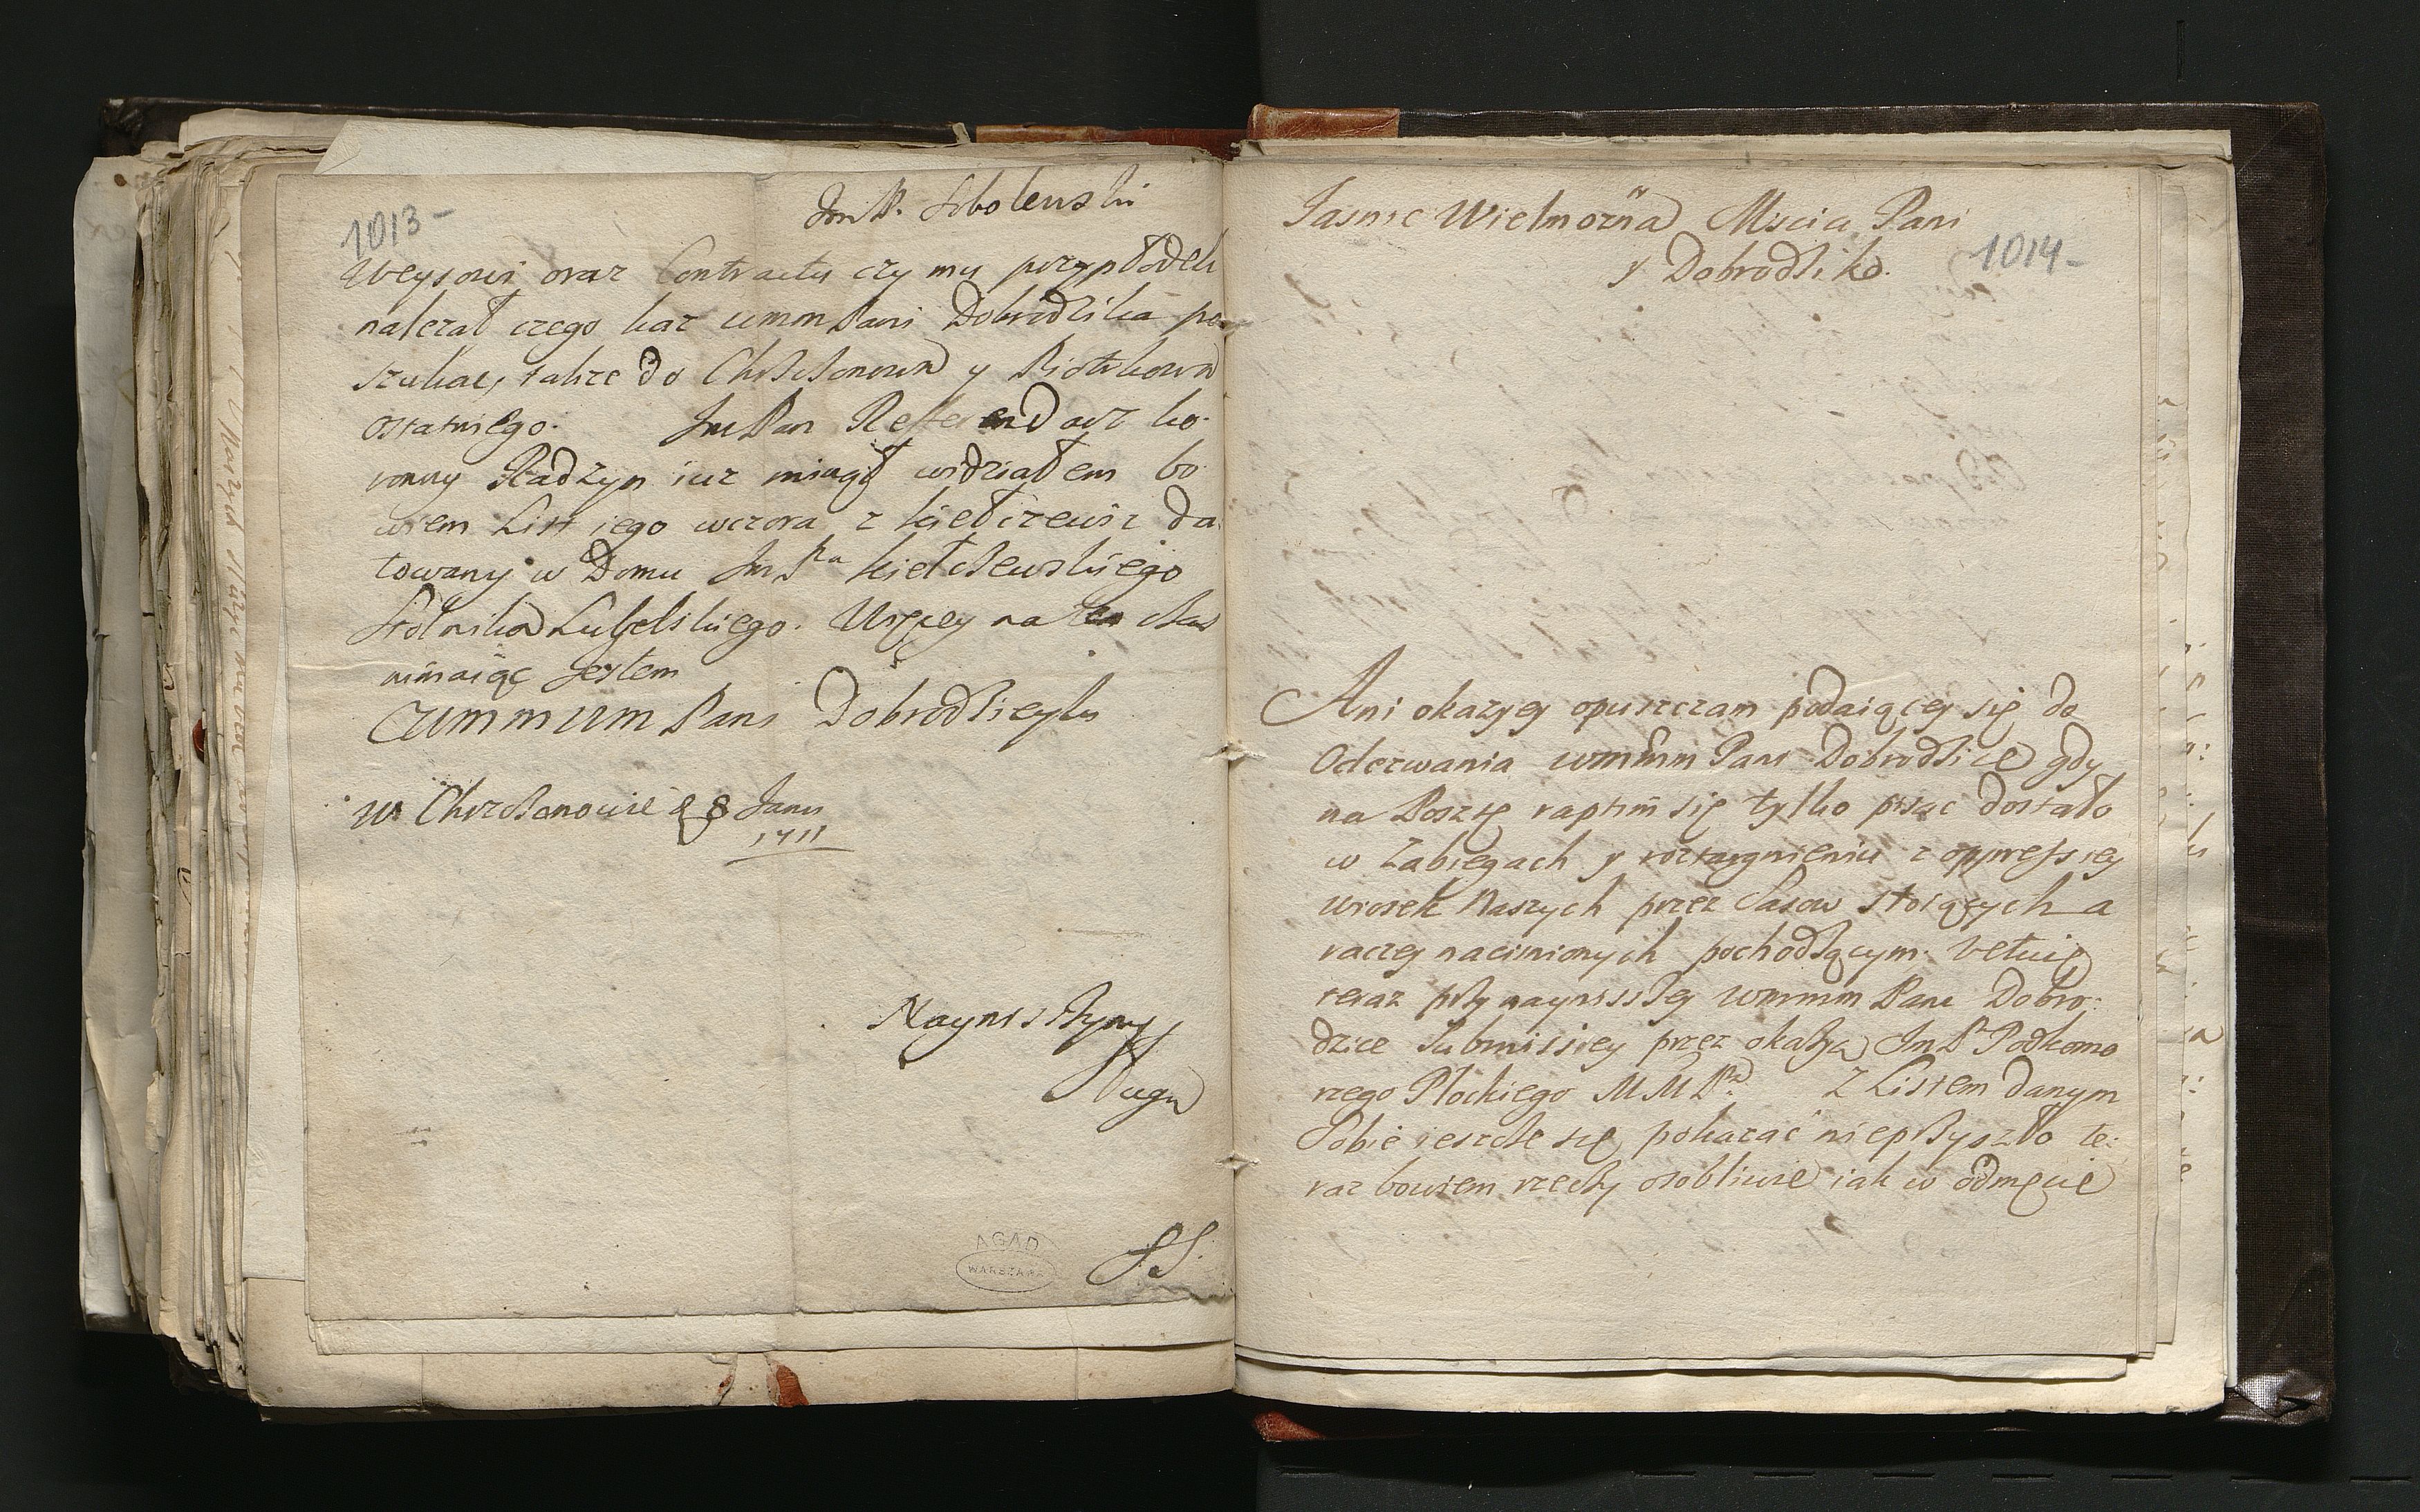 1013-
JmP. Sobolewski
Weysowi oraz Contractu czy mu przypłodek
należał czego kaz wmmPani Dobrodzika po
szukac, także do Chrzczonowa y Piotrkowa
ostatniego. JmPan Referendarz ko-
ronny Radzyn iuz minął widziałem bo
wiem List iego wczora z Kiełczewic da
towany w Domu JmPna Kiełczewskiego
Stolnika Lubelskiego. Więcey na ten czas
nimaiąc Jestem
WmmMm Pani Dobrodzieyki
w Chrzczonowie 28 Janu
1711
Naynisszym
Sługa
SS.
AGAD
WARSZAWA
Jasnie Wielmozna Mscia Pani
y Dobrodziko.
1014-
Ani okazyey opuszczam podaiącey się do
Odezwania wmmm Pani Dobrodzice gdy
na Posztę raptim się tylko pisac dostało
w Zabiegach y roztargnieniu z oppressiey
wiosek Naszych przez Sasow stoiących a
raczey nacisnionych pochodzącym. Vetuię
teraz przy naynisszey wmmm Pani Dobro:
dzice submissiey przez okazya JmP Podkomo
rzego Płockiego MMPa. Z Listem danym
Sobie ieszcze się pokazać nieprzyszło te:
raz bowiem rzeczy osobliwie iak w odmęcie